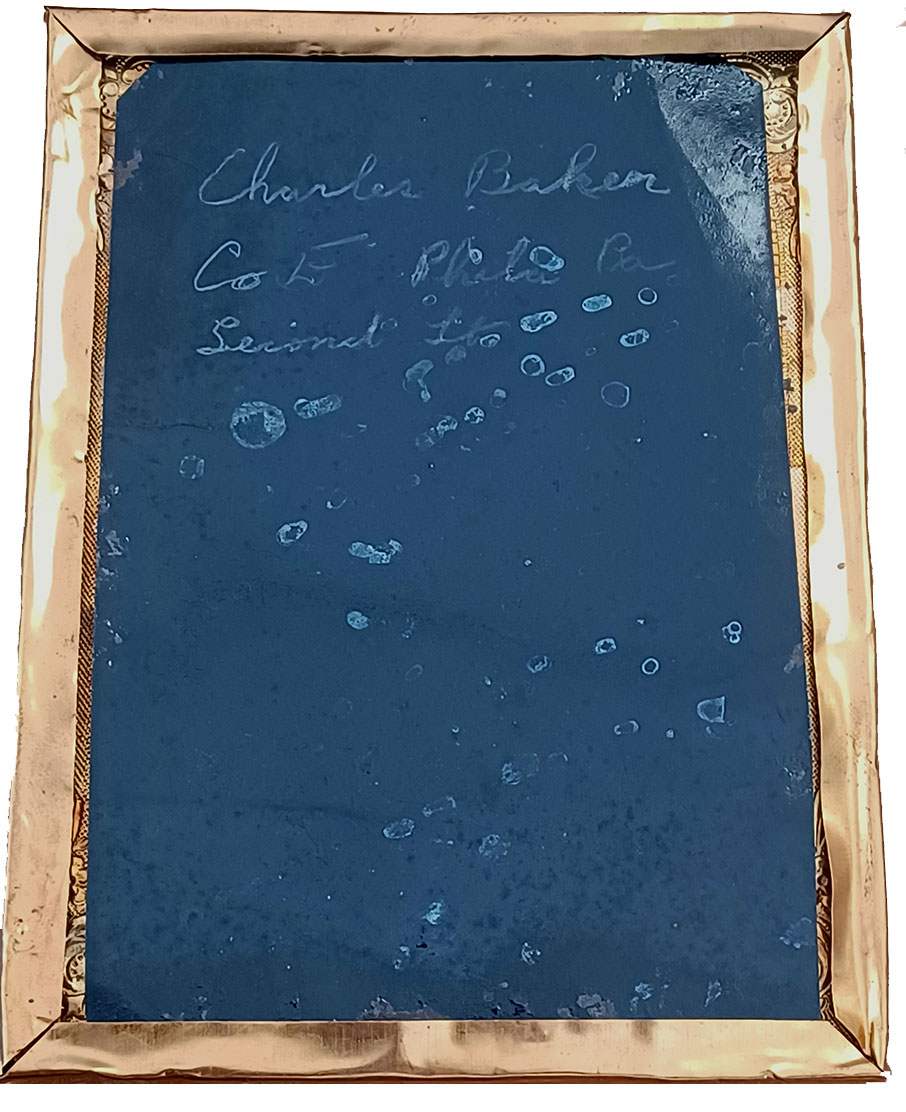 Charles Baker
Co F Phila Pa
Second Lt